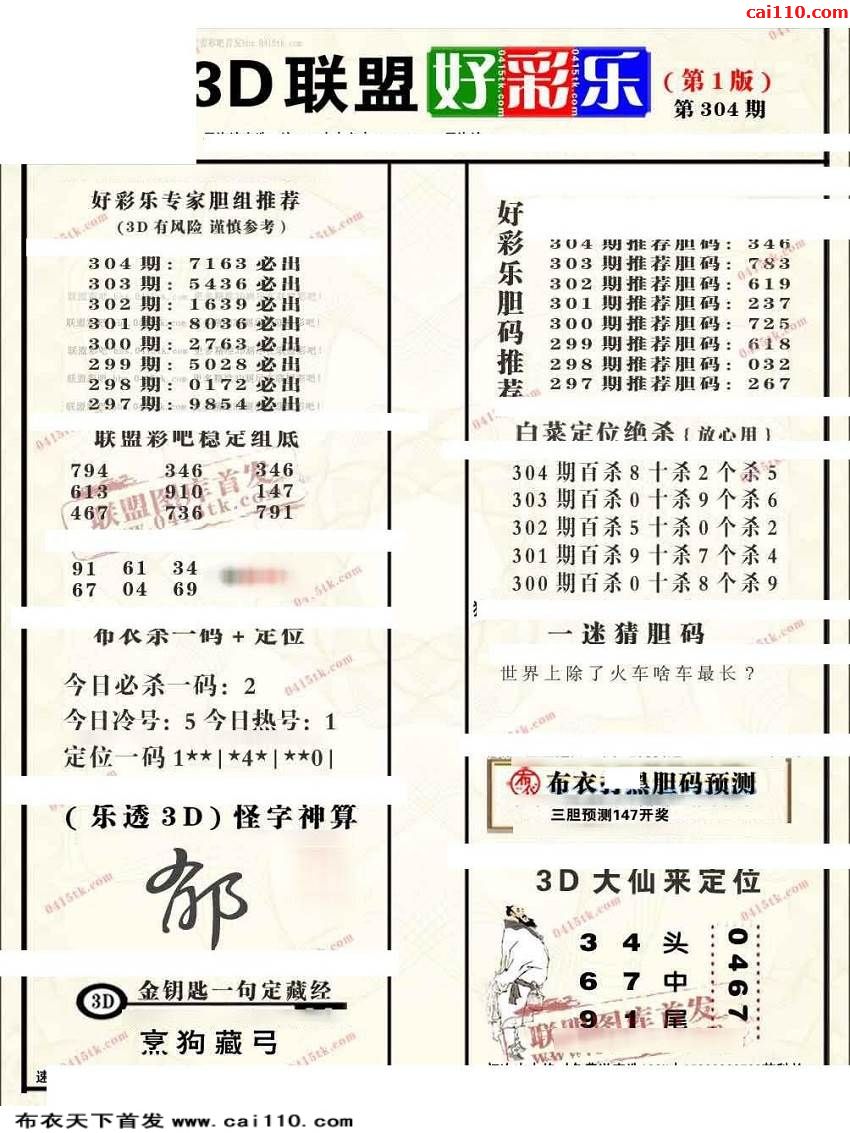 cai110.com
3D联盟好彩乐
(第1版)
第304期
好彩乐专家胆组推荐
(3D有风险 谨慎参考)
304期:7163必出
303期:5436必出
302期:1639必出
301期:8036必出
300期:2763必出
299期:5028必出
298期:0172必出
297期:9854必出
联盟彩吧稳定组底
794 346 346
613 910 147
467 736 791
91 61 34
67 04 69
布衣杀一码+定位
今日必杀一码:2
今日冷号:5 今日热号:1
定位一码1**|*4*|**0|
(乐透3D)怪字神算
郁
3D 金钥匙一句定藏经
烹狗藏弓
好彩乐胆码推荐
304期推荐胆码:346
303期推荐胆码:783
302期推荐胆码:619
301期推荐胆码:237
300期推荐胆码:725
299期推荐胆码:618
298期推荐胆码:032
297期推荐胆码:267
白菜定位绝杀{放心用}
304期百杀8十杀2个杀5
303期百杀0十杀9个杀6
302期百杀5十杀0个杀2
301期百杀9十杀7个杀4
300期百杀0十杀8个杀9
一迷猜胆码
世界上除了火车啥车最长?
布衣 黑胆码预测
三胆预测147开奖
3D大仙来定位
3 4 头
6 7 中
9 1 尾
0467
联盟图库首发
www.0415tk.com
迷
布衣天下首发 www.cai110.com